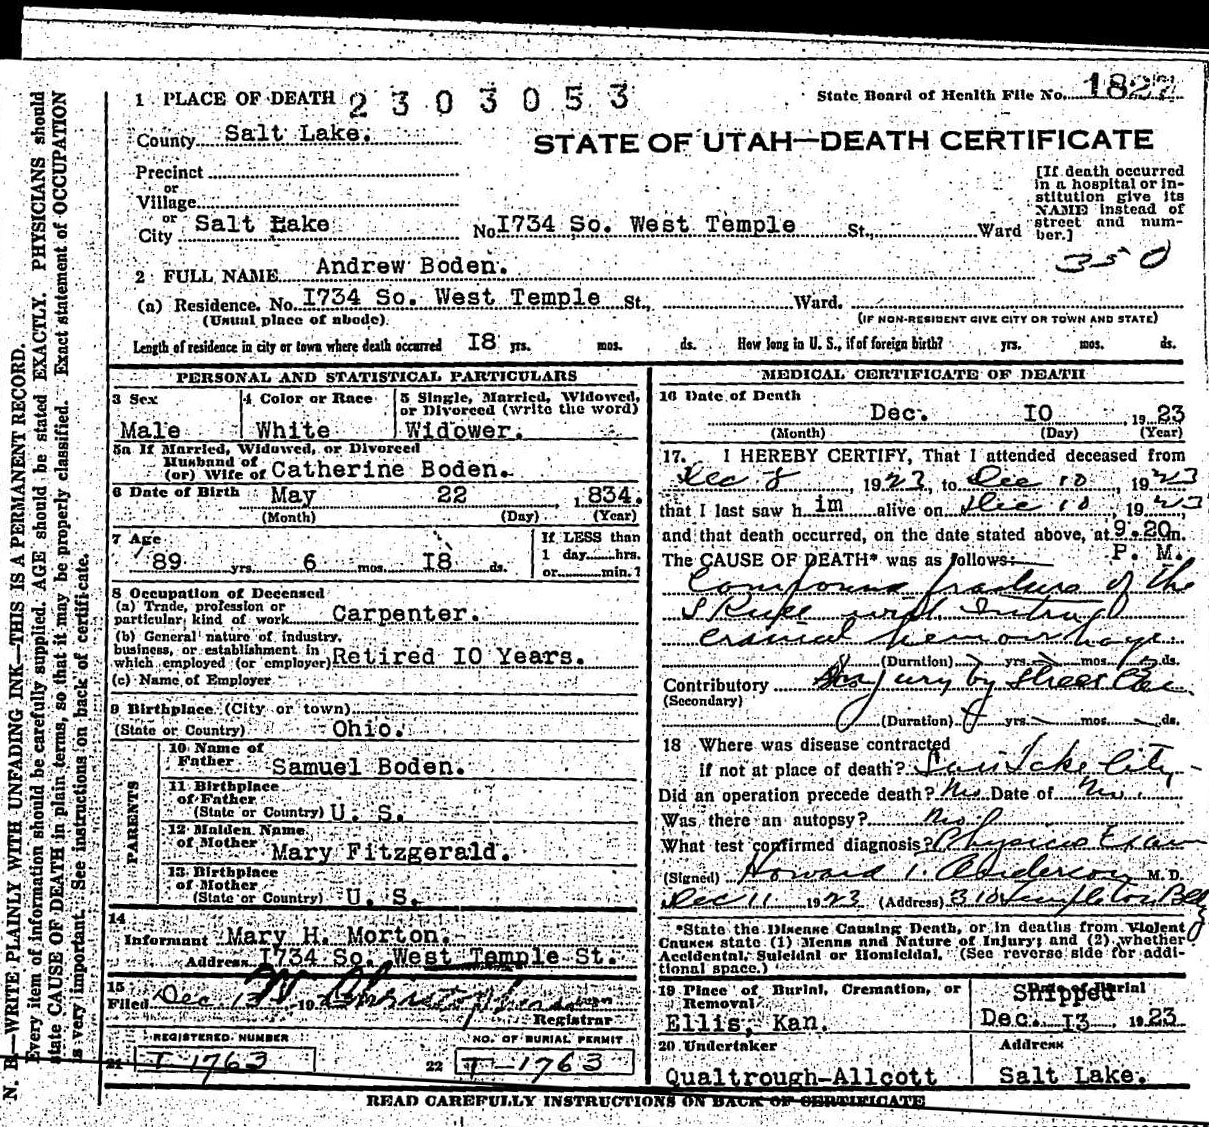 1 PLACE OF DEATH 2303053
State Board of Health File No. 1827
County Salt Lake.
STATE OF UTAH—DEATH CERTIFICATE
Precinct
or
Village
or
City Salt Lake No. I734 So. West Temple St., Ward
[If death occurred in a hospital or institution give its NAME instead of street and number.]
350
2 FULL NAME Andrew Boden.
(a) Residence. No. I734 So. West Temple St., Ward.
(Usual place of abode) (IF NON-RESIDENT GIVE CITY OR TOWN AND STATE)
Length of residence in city or town where death occurred I8 yrs. mos. ds. How long in U. S., if of foreign birth? yrs. mos. ds.
PERSONAL AND STATISTICAL PARTICULARS
3 Sex 4 Color or Race 5 Single, Married, Widowed, or Divorced (write the word)
Male White Widower.
5a If Married, Widowed, or Divorced
Husband of
(or) Wife of Catherine Boden.
6 Date of Birth May 22 , 1834.
(Month) (Day) (Year)
7 Age If LESS than
89 yrs. 6 mos. I8 ds. 1 day hrs.
or min.?
8 Occupation of Deceased
(a) Trade, profession or
particular kind of work Carpenter.
(b) General nature of industry,
business, or establishment in
which employed (or employer) Retired IO Years.
(c) Name of Employer
9 Birthplace (City or town)
(State or Country) Ohio.
PARENTS
10 Name of
Father Samuel Boden.
11 Birthplace
of Father
(State or Country) U. S.
12 Maiden Name
of Mother Mary Fitzgerald.
13 Birthplace
of Mother
(State or Country) U. S.
14
Informant Mary H. Morton.
Address I734 So. West Temple St.
15
Filed Dec 13 19
Registrar
REGISTERED NUMBER NO. OF BURIAL PERMIT
21 T-1763 22 T-1763
MEDICAL CERTIFICATE OF DEATH
16 Date of Death
Dec. IO 1923
(Month) (Day) (Year)
17. I HEREBY CERTIFY, That I attended deceased from
Dec 8, 1923, to Dec 10, 1923
that I last saw him alive on Dec 10, 1923,
and that death occurred, on the date stated above, at 9.20m.
P. M.
The CAUSE OF DEATH* was as follows:
Compound fracture of the
Skull with Intra
cranial hemorrhage
(Duration) yrs. mos. 2 ds.
Contributory Injury by Street Car
(Secondary)
(Duration) yrs. mos. ds.
18 Where was disease contracted
if not at place of death? Salt Lake City
Did an operation precede death? No Date of No.
Was there an autopsy? No
What test confirmed diagnosis? Physical Exam
(Signed) Howard T. Anderson M. D.
Dec 11 1923 (Address) 310 Templeton Bldg
*State the Disease Causing Death, or in deaths from Violent
Causes state (1) Means and Nature of Injury; and (2) whether
Accidental, Suicidal or Homicidal. (See reverse side for additional space.)
19 Place of Burial, Cremation, or Removal Date of Burial
Shipped
Ellis, Kan. Dec. I3, 1923
20 Undertaker Address
Qualtrough-Allcott Salt Lake.
READ CAREFULLY INSTRUCTIONS ON BACK OF CERTIFICATE
N. B.—WRITE PLAINLY WITH UNFADING INK—THIS IS A PERMANENT RECORD.
Every item of information should be carefully supplied. AGE should be stated EXACTLY. PHYSICIANS should
state CAUSE OF DEATH in plain terms, so that it may be properly classified. Exact statement of OCCUPATION
is very important. See instructions on back of certificate.